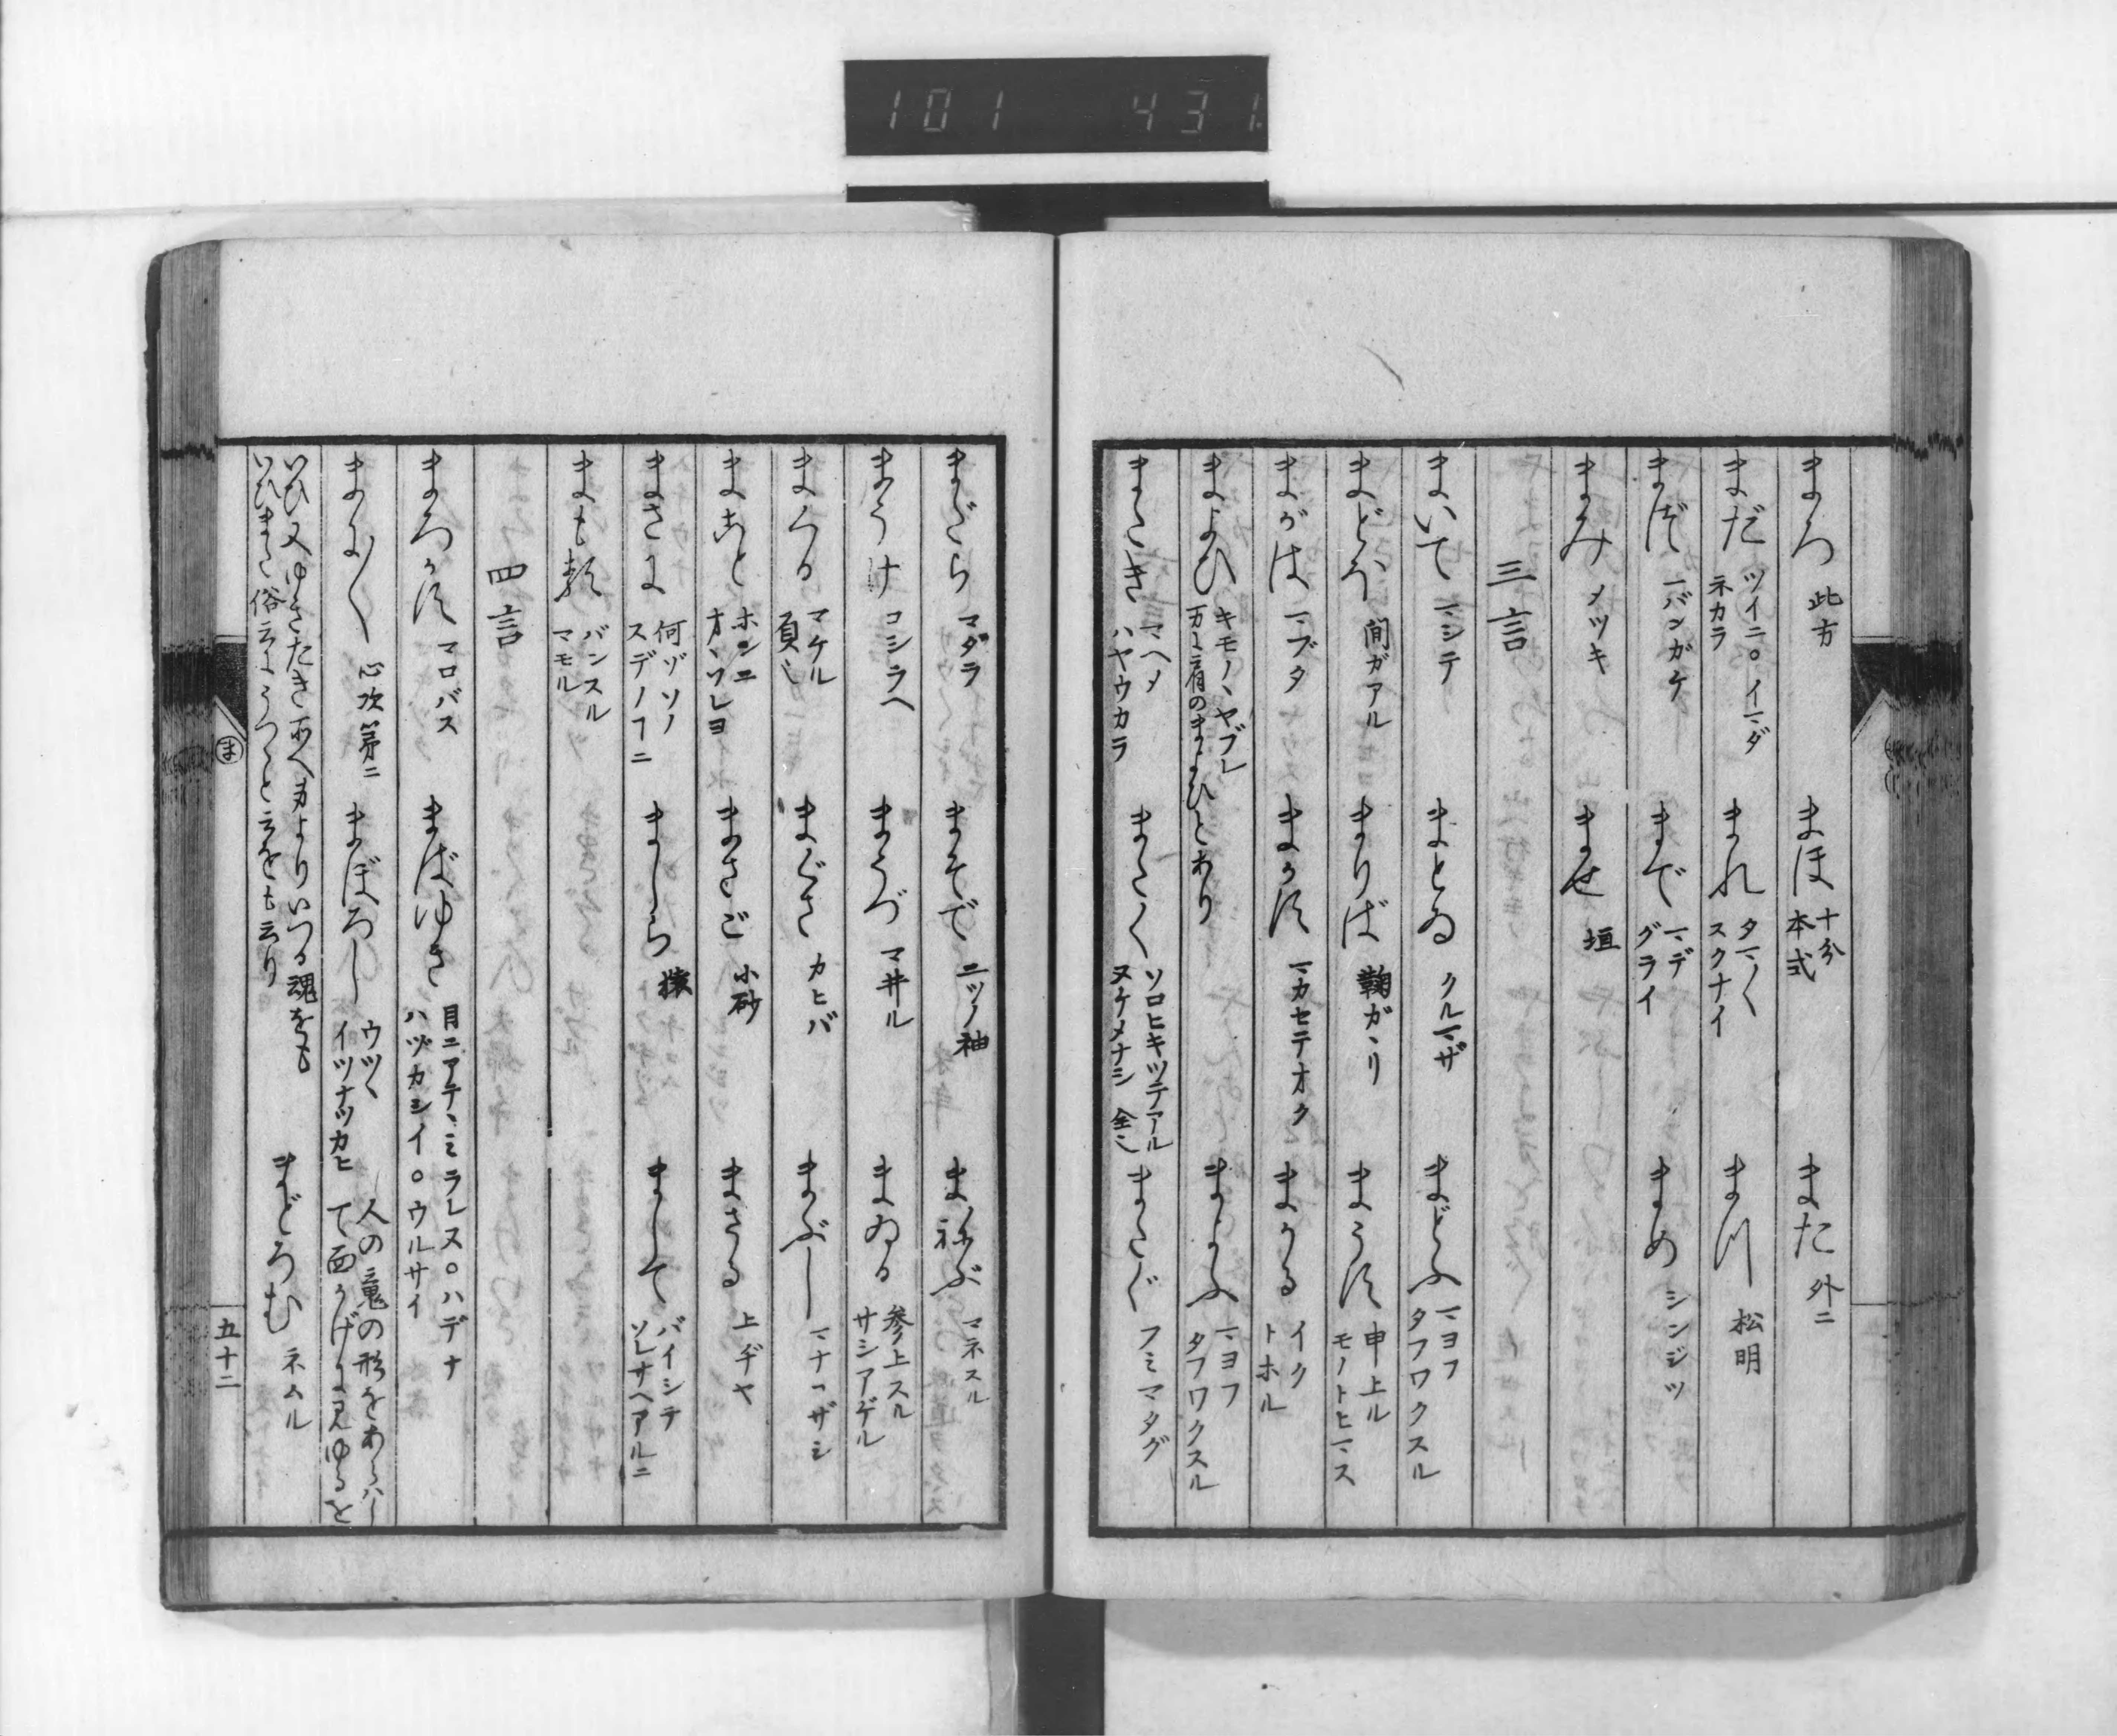 101 431
まろ 此方 まほ 十分 本式 また 外ニ
まだ ツイニ。イマダ ネカラ まれ タマ〱 スクナイ まつ 松明
まづ 一バンガケ まで マデ グライ まめ シンジツ
まみ メツキ ませ 垣
三言
まいて マシテ まとゐ クルマザ まどふ マヨフ タフワクスル
まどほ 間ガアル まりば 鞠ガヽリ まうす 申上ル モノトヒマス
まがは マブタ まかす マカセテオク まかる イク トホル
まよひ キモノヽヤブレ 万に肩のまよひとあり まよふ マヨフ タフワクスル
まだき マヘメ ハヤウカラ またく ソロヒキツテアル ヌケメナシ 全シ またぐ フミマタグ
まだら マダラ まそで 二ツノ袖 まねぶ マネスル
まうけ コシラヘ まうづ マ井ル まゐる 参上スル サシアゲル
まくる マケル 負シ まぐさ カヒバ まぶし マナコザシ
まこと ホンニ オヽソレヨ まさご 小砂 まさる 上ヂヤ
まさに 何ゾソノ スデノコニ ましら 猿 まして バイシテ ソレサヘアルニ
まも類 バンスル マモル
四言
まろばす マロバス まばゆき 目ニアテヽミラレヌ。ハデナ ハヅカシイ。ウルサイ
まに〱 心次第ニ まぼろし ウツヽ イツナツカヒ 人の魂の形をあらハし て面かげに見ゆるを
いひ又ゆきたき所へ身よりいづる魂をも いひまた俗云うつゝと云をも云り まどろむ ネムル
ま
五十二